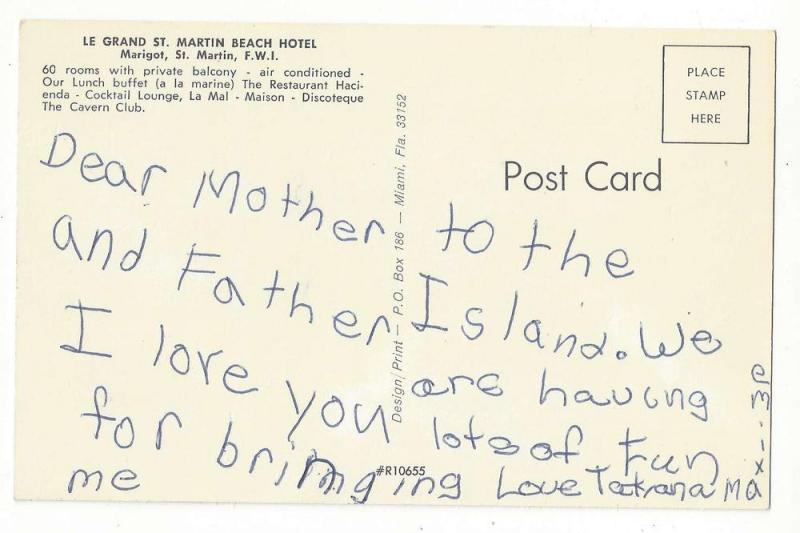 LE GRAND ST. MARTIN BEACH HOTEL
Marigot, St. Martin, F.W.I.
60 rooms with private balcony - air conditioned -
Our Lunch buffet (a la marine) The Restaurant Haci-
enda - Cocktail Lounge, La Mal - Maison - Discoteque
The Cavern Club.
PLACE
STAMP
HERE
Post Card
Design/Print — P.O. Box 186 — Miami, Fla. 33152
#R10655
Dear Mother
and Father
I love you
for bringing
me
to the
Island. We
are having
lots of fun
Love